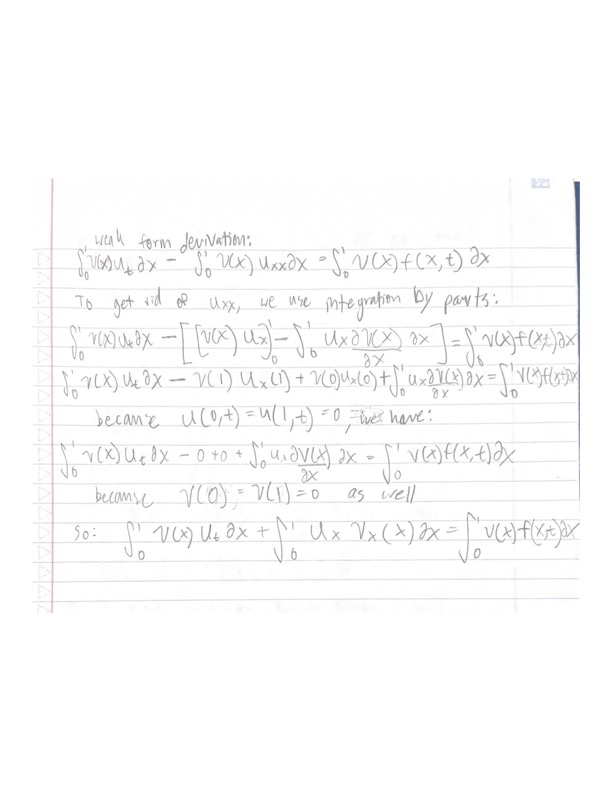 weak form derivation:
∫₀¹ v(x) u_t ∂x − ∫₀¹ v(x) u_xx ∂x = ∫₀¹ v(x) f(x,t) ∂x
To get rid of u_xx, we use integration by parts:
∫₀¹ v(x) u_t ∂x − [[v(x) u_x]₀¹ − ∫₀¹ u_x ∂v(x)/∂x ∂x] = ∫₀¹ v(x) f(x,t) ∂x
∫₀¹ v(x) u_t ∂x − v(1) u_x(1) + v(0) u_x(0) + ∫₀¹ u_x ∂v(x)/∂x ∂x = ∫₀¹ v(x) f(x,t) ∂x
because u(0,t) = u(1,t) = 0, we have:
∫₀¹ v(x) u_t ∂x − 0 + 0 + ∫₀¹ u_x ∂v(x)/∂x ∂x = ∫₀¹ v(x) f(x,t) ∂x
because v(0) = v(1) = 0 as well
so: ∫₀¹ v(x) u_t ∂x + ∫₀¹ u_x v_x(x) ∂x = ∫₀¹ v(x) f(x,t) ∂x